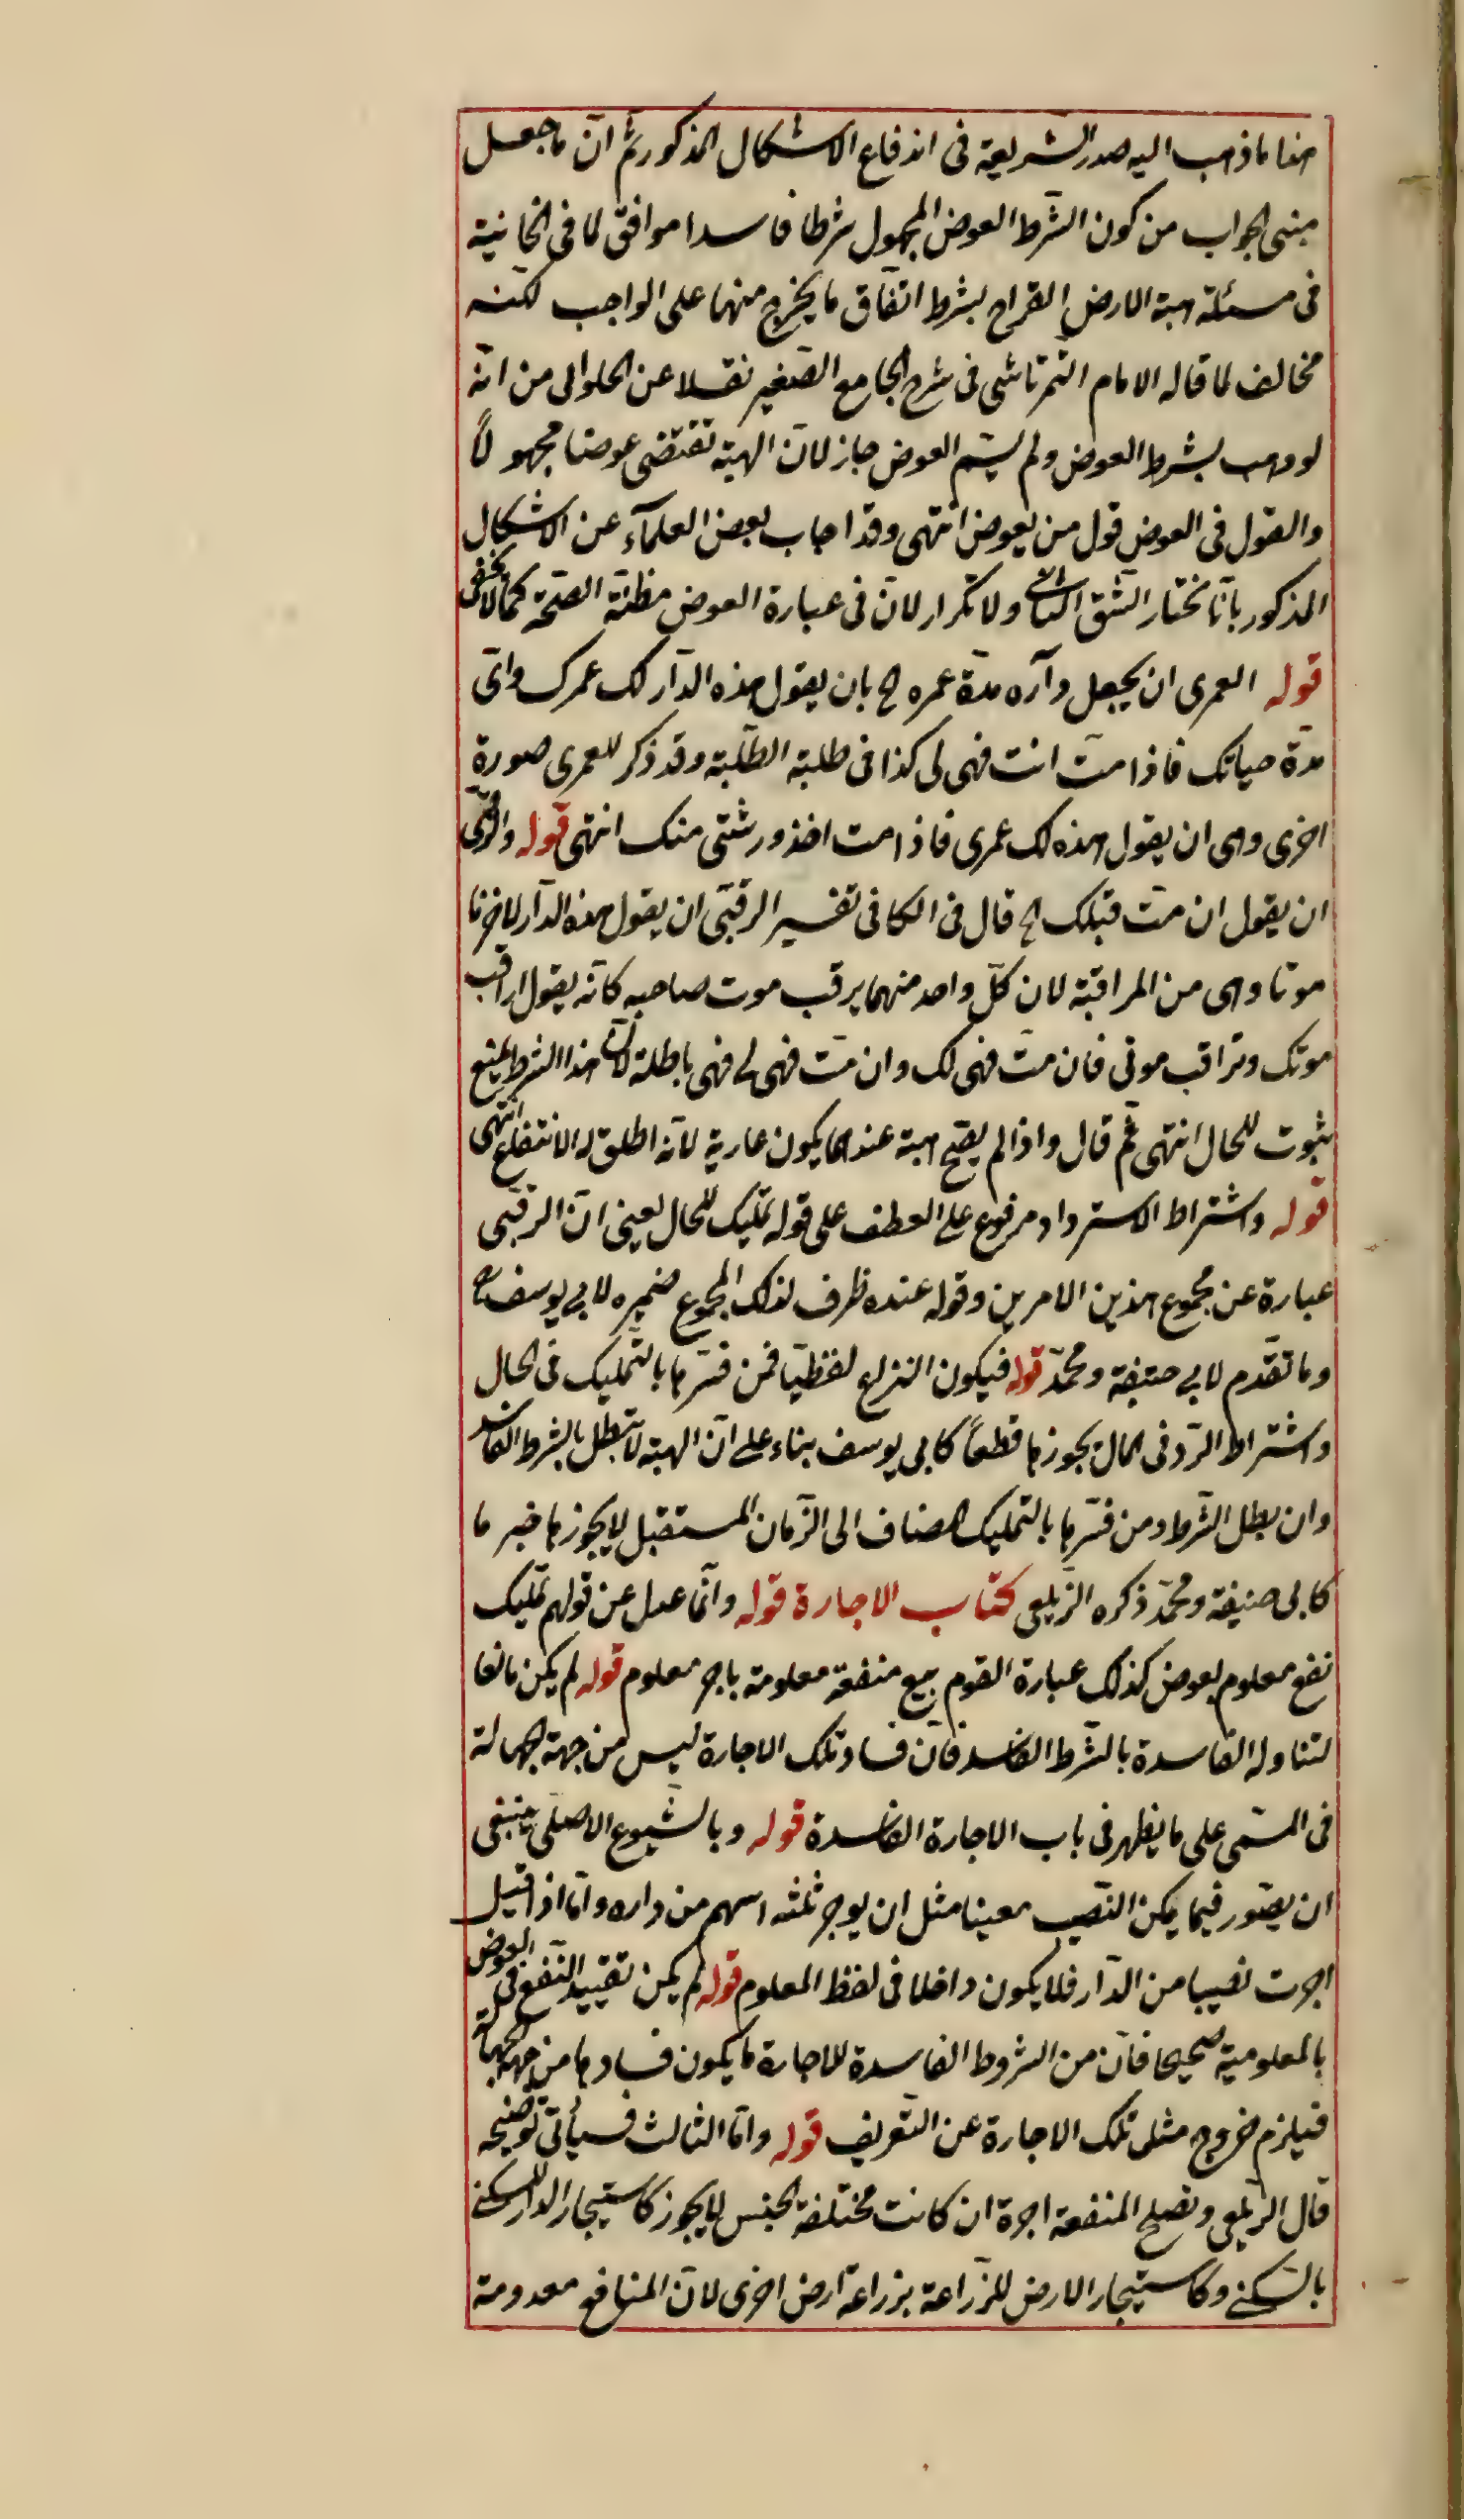 هذا ما ذهب اليه صدر الشريعة فى اندفاع الاشكال المذكور ثم ان ما جعل
مبنى الجواب من كون الشرط العوض المجهول شرطا فاسدا موافق لما فى الخانية
فى مسئلة هبة الارض القراح بشرط انفاق ما يخرج منها على الواجب لكنه
مخالف لما قاله الامام التمرتاشى فى شرح الجامع الصغير نقلا عن الحلوانى من انه
لو وهب بشرط العوض ولم يسم العوض جاز لان الهبة تقتضى عوضا مجهولا
والقول فى العوض قول من يعوض انتهى وقد اجاب بعض العلمآء عن الاشكال
المذكور بانا نختار الشق الثانى ولا تكرار لان فى عبارة العوض مظنة الصحة كما لا يخفى
قوله العمرى ان يجعل دآره مدة عمره الخ بان يقول هذه الدار لك عمرك واتى
مدة حياتك فاذا مت انت فهى لى كذا فى طلبة الطلبة وقد ذكر للعمرى صورة
اخرى وهى ان يقول هذه لك عمرى فاذا مت اخذ ورثتى منك انتهى قوله والرقبى
ان يقول ان مت قبلك الخ قال فى الكافى تفسير الرقبى ان يقول هذه الدار لاخرنا
موتا وهى من المراقبة لان كل واحد منهما يرقب موت صاحبه كانه يقول اراقب
موتك وتراقب موتى فان مت فهى لك وان مت فهى لى فهى باطلة لان هذا الشرط يمنع
ثبوت للحال انتهى ثم قال واذا لم يصح هبة عندهما يكون عارية لانه اطلق له الانتفاع انتهى
قوله واشتراط الاسترداد مرفوع على العطف على قوله تمليك للحال يعنى ان الرقبى
عبارة عن مجموع هذين الامرين وقوله عنده ظرف لذلك المجموع ضميره لابى يوسف
وما تقدم لابى حنيفة ومحمد قوله فيكون النزاع لفظيا فمن فسرها بالتمليك فى الحال
واشتراط الرد فى المال يجوزها قطعا كابى يوسف بناء على ان الهبة لا تبطل بالشرط الفاسد
وان بطل الشرط ومن فسرها بالتمليك المضاف الى الزمان المستقبل لا يجوزها خبر ما
كابى حنيفة ومحمد ذكره الزيلعى كتاب الاجارة قوله وانما عدل عن قولهم تمليك
نفع معلوم بعوض كذلك عبارة القوم بيع منفعة معلومة باجر معلوم قوله لم يكن مانعا
لتناوله الفاسدة بالشرط الفاسد فان فساد تلك الاجارة ليس من جهة الجهالة
فى المسمى على ما يظهر فى باب الاجارة الفاسدة قوله وبالشيوع الاصلى ينبغى
ان يصور فيما يكن النصيب معينا مثل ان يوجر ثلثه اسهم من داره واما اذا قيل
اجرت نصيبا من الدار فلا يكون داخلا فى لفظ المعلوم قوله لم يكن تقييد النفع فى العوض
بالمعلومية صحيحا فان من الشروط الفاسدة للاجارة ما يكون فسادها من جهة الجهالة
فيلزم خروج مثل تلك الاجارة عن التعريف قوله واما الثالث فسيأتى توضيحه
قال الزيلعى وتصلح المنفعة اجرة ان كانت مختلفة الجنس لا يجوز كاستيجار الدار للسكنى
بالسكنى وكاستيجار الارض للزراعة بزراعة ارض اخرى لان المنافع معدومة